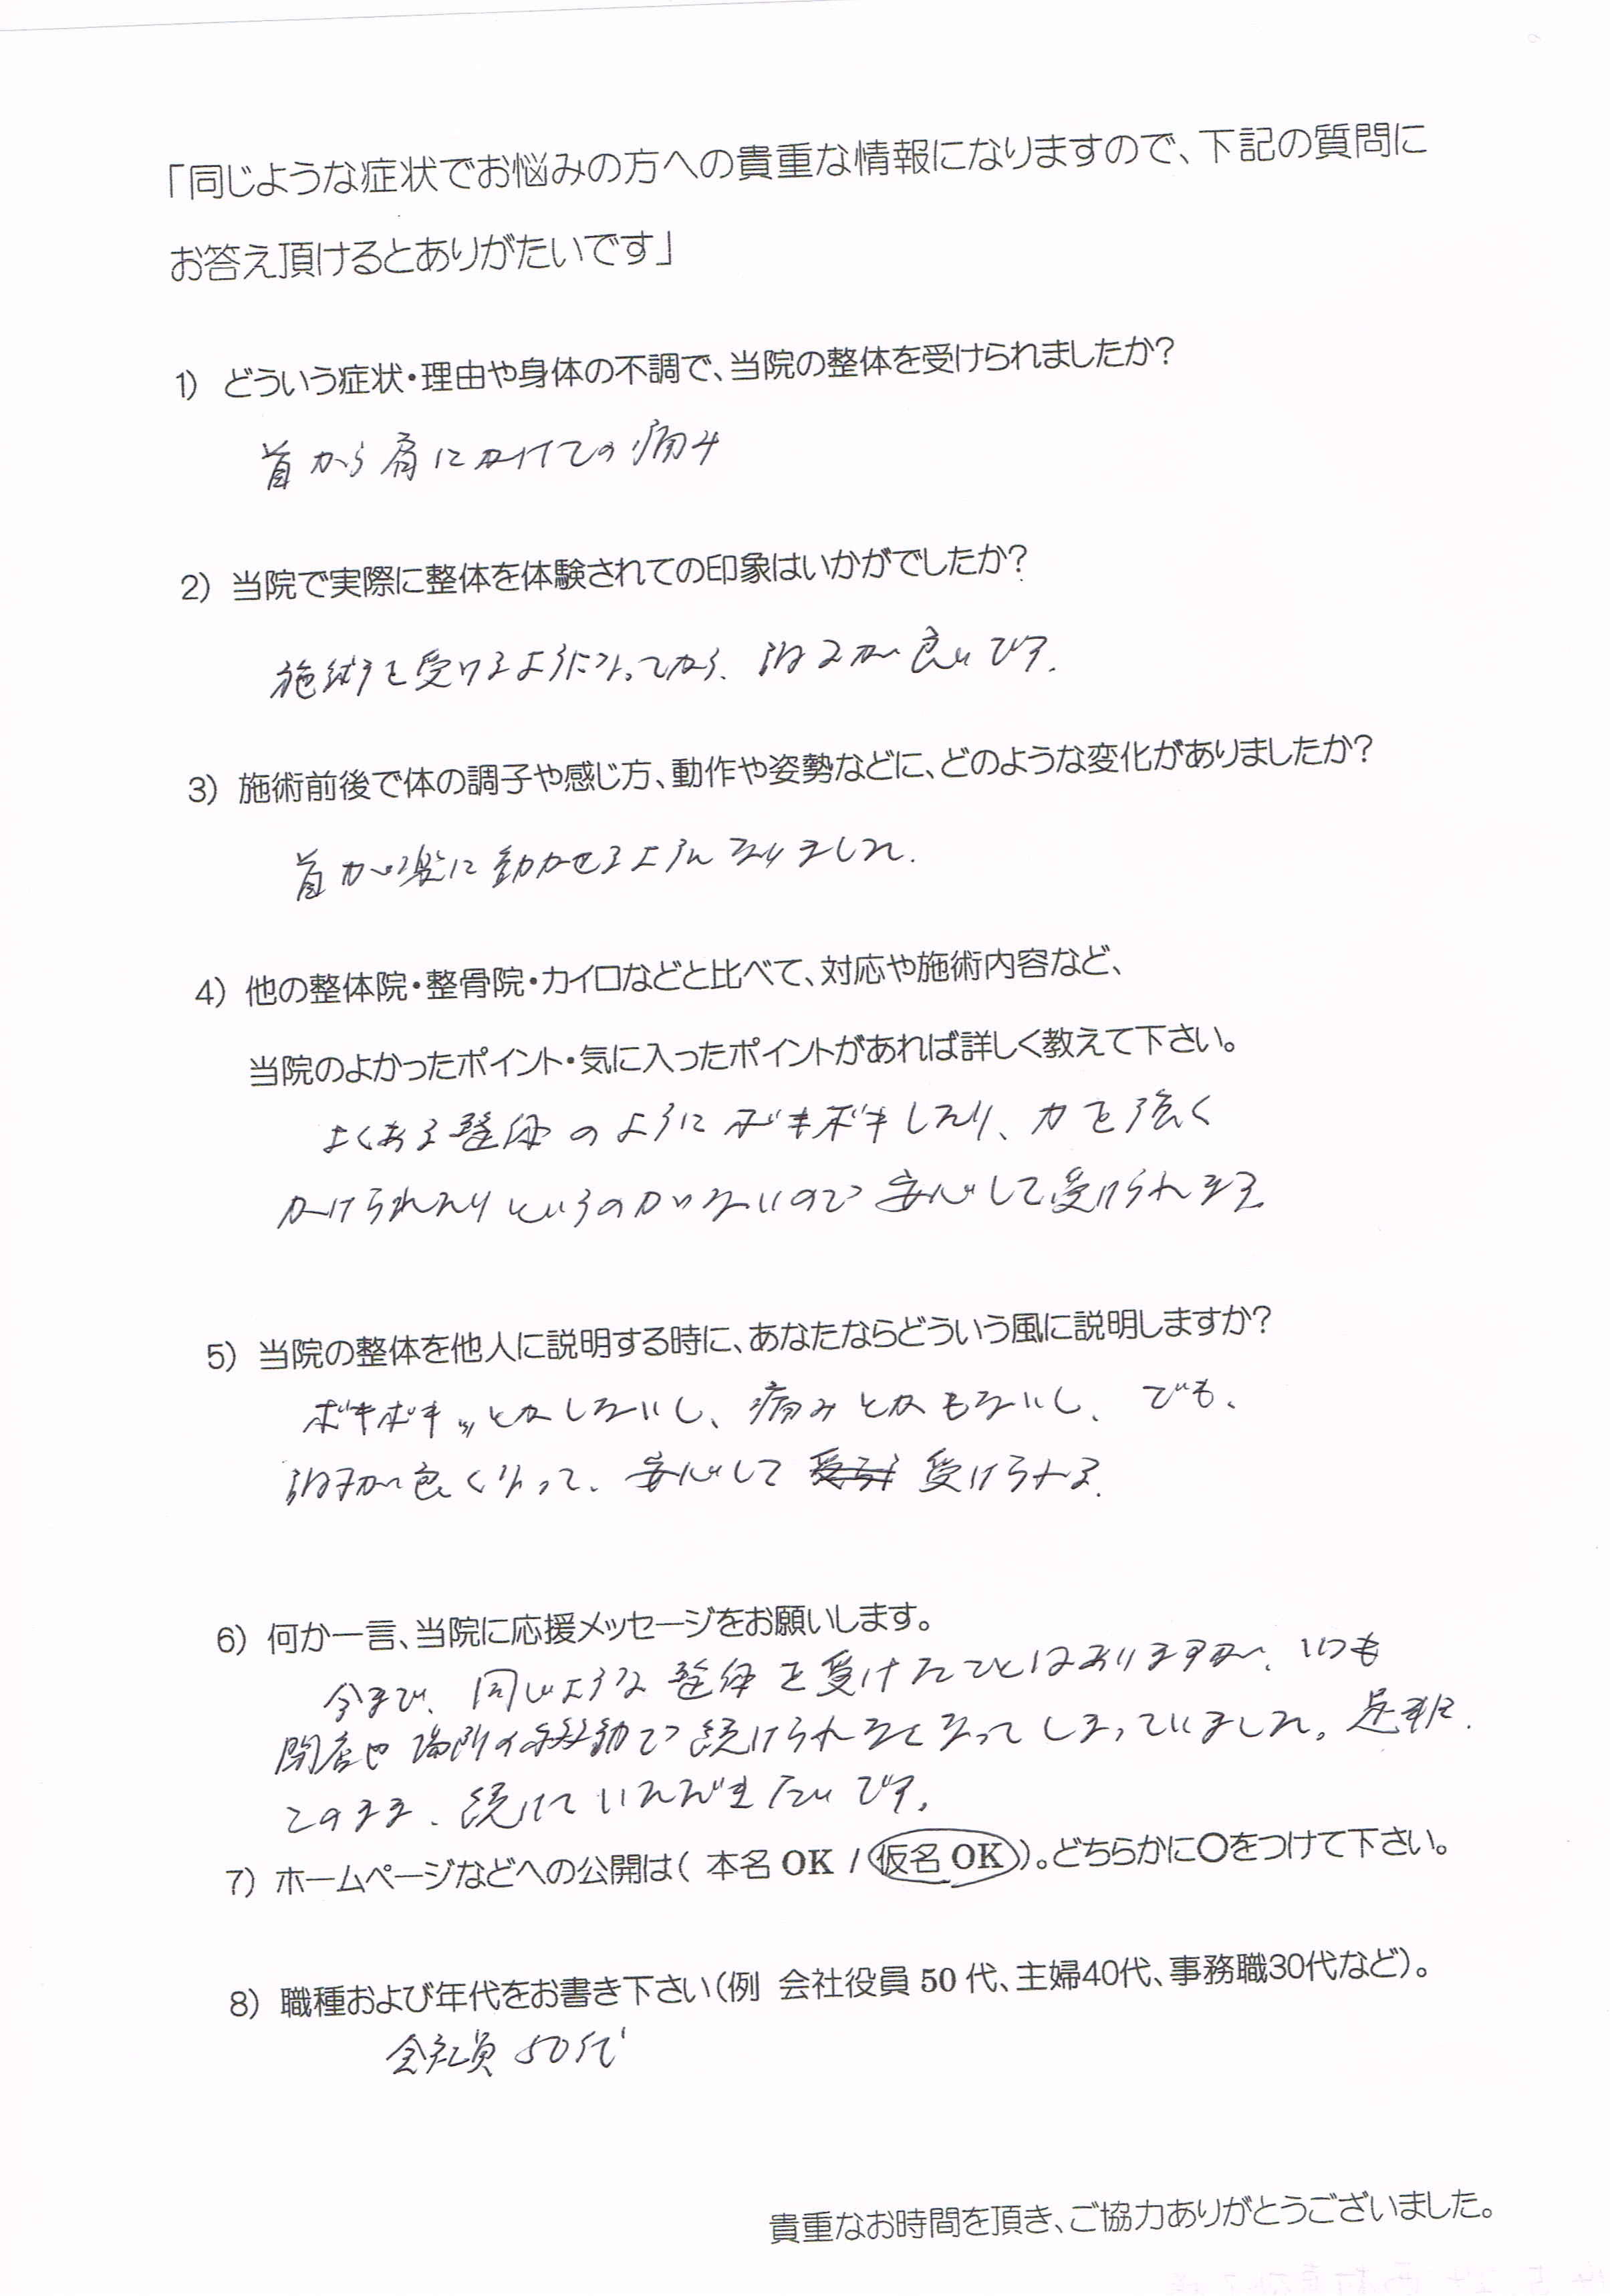 「同じような症状でお悩みの方への貴重な情報になりますので、下記の質問に
お答え頂けるとありがたいです」
1） どういう症状・理由や身体の不調で、当院の整体を受けられましたか？
首から肩にかけての痛み
2） 当院で実際に整体を体験されての印象はいかがでしたか？
施術を受けるようになってから、調子が良いです。
3） 施術前後で体の調子や感じ方、動作や姿勢などに、どのような変化がありましたか？
首が楽に動かせるようになりました。
4） 他の整体院・整骨院・カイロなどと比べて、対応や施術内容など、
当院のよかったポイント・気に入ったポイントがあれば詳しく教えて下さい。
よくある整体のようにボキボキしたり、力を強く
かけられたりというのがないので安心して受けられます。
5） 当院の整体を他人に説明する時に、あなたならどういう風に説明しますか？
ボキボキッとかしないし、痛みとかもないし、でも、
調子が良くなって、安心して 受けられる。
6） 何か一言、当院に応援メッセージをお願いします。
今まで、同じような整体を受けたことはありますが、いつも
閉店や場所の移動で続けられなくなってしまっていました。是非、
このまま、続けていただきたいです。
7） ホームページなどへの公開は（ 本名 OK / 仮名 OK ）。どちらかに〇をつけて下さい。
8） 職種および年代をお書き下さい（例 会社役員 50 代、主婦40代、事務職30代など）。
会社員 50代
貴重なお時間を頂き、ご協力ありがとうございました。